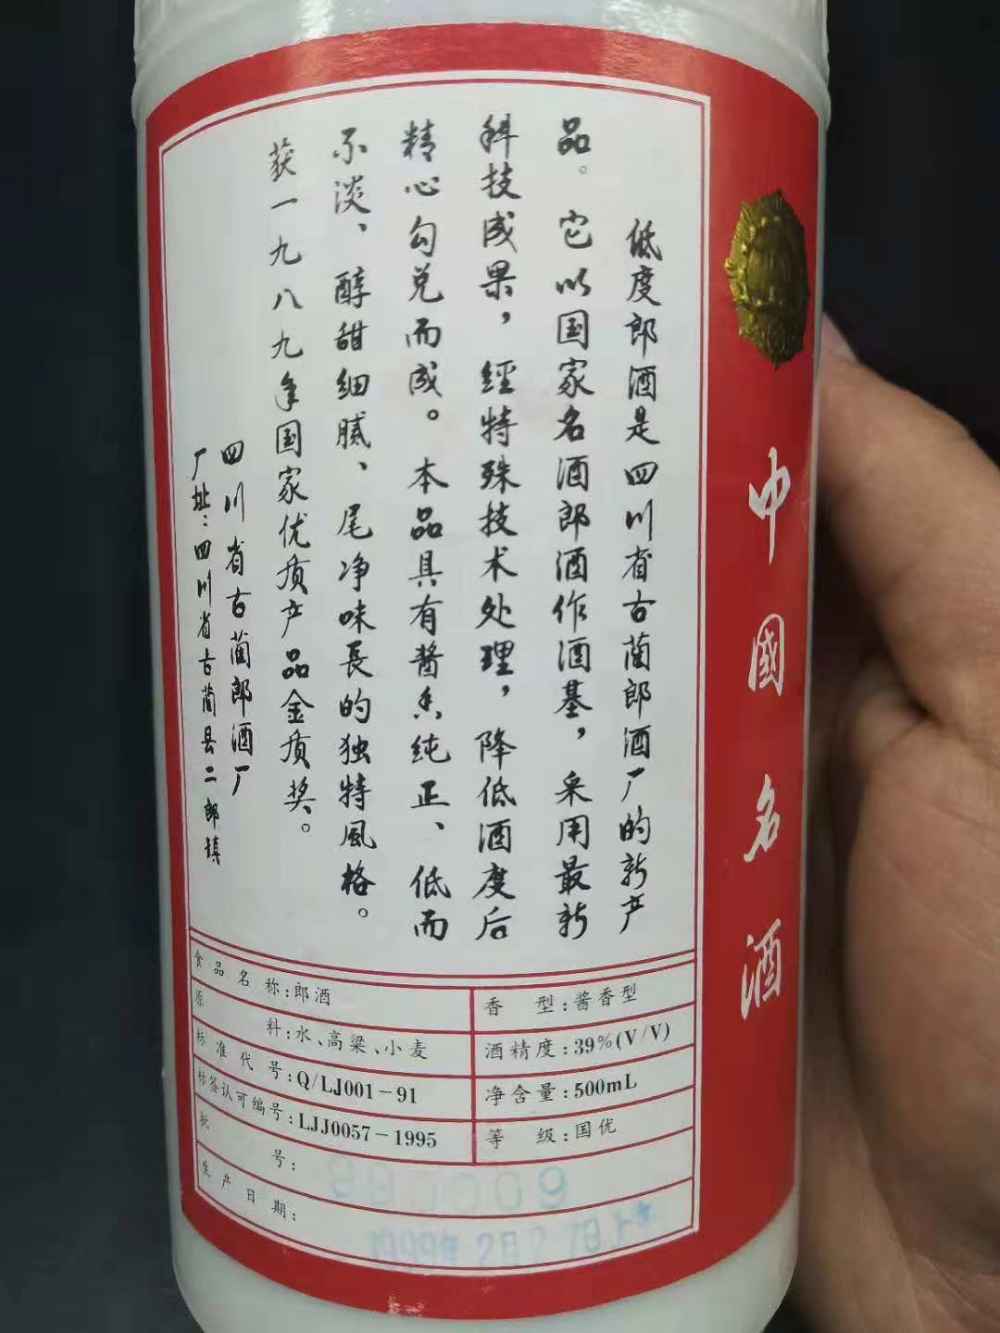 低度郎酒是四川省古蔺郎酒厂的新产
品。它以国家名酒郎酒作酒基，采用最新
科技成果，經特殊技术处理，降低酒度后
精心勾兑而成。本品具有酱香纯正、低而
不淡、醇甜细腻、尾净味長的独特風格。
获一九八九年国家优质产品金质奖。
四川省古蔺郎酒厂
厂址：四川省古蔺县二郎镇
中國名酒
食品名称：郎酒
香型：酱香型
原料：水、高粱、小麦
酒精度：39%(V/V)
标准代号：Q/LJ001-91
净含量：500mL
标签认可编号：LJJ0057-1995
等级：国优
批号：
生产日期：
1999年2月